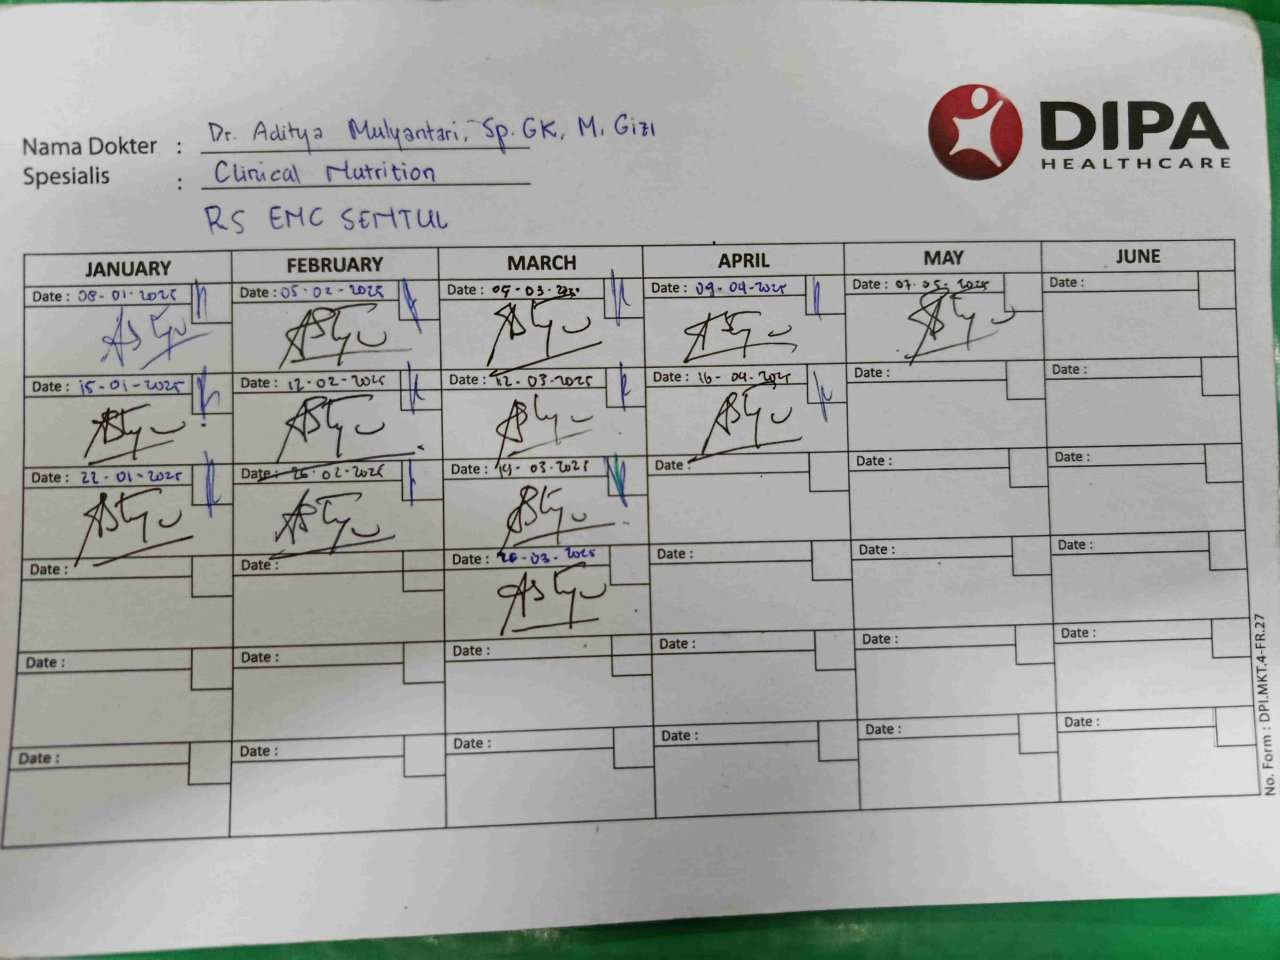 DIPA
HEALTHCARE
Nama Dokter : Dr. Aditya Mulyantari, Sp. GK, M. Gizi
Spesialis : Clinical Nutrition
RS EMC SENTUL
JANUARY FEBRUARY MARCH APRIL MAY JUNE
Date : 08-01-2025 Date : 05-02-2025 Date : 05-03- Date : 09-04-2025 Date : 07-05-2025 Date :
Date : 15-01-2025 Date : 12-02-2025 Date : 12-03-2025 Date : 16-04-2025 Date : Date :
Date : 22-01-2025 Date : 26-02-2025 Date : 19-03-2025 Date : Date : Date :
Date : Date : Date : 26-03-2025 Date : Date : Date :
Date : Date : Date : Date : Date : Date :
Date : Date : Date : Date : Date : Date :
No. Form : DPI.MKT.4-FR.27